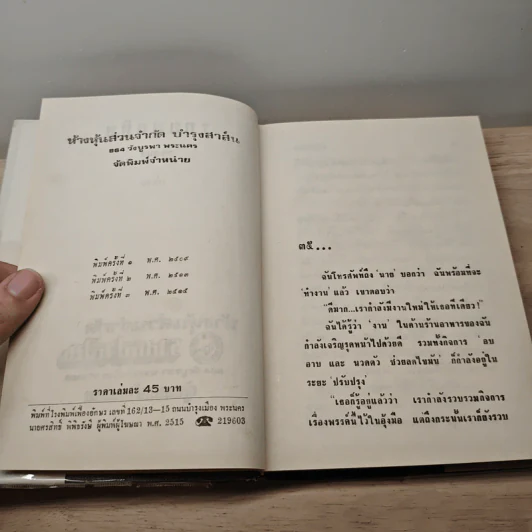 ห้างหุ้นส่วนจำกัด บำรุงสาส์น
๕๘๔ วังบูรพา พระนคร
จัดพิมพ์จำหน่าย
พิมพ์ครั้งที่ ๑ พ.ศ. ๒๕๐๙
พิมพ์ครั้งที่ ๒ พ.ศ. ๒๕๑๓
พิมพ์ครั้งที่ ๓ พ.ศ. ๒๕๑๕
ราคาเล่มละ 45 บาท
พิมพ์ที่โรงพิมพ์เฟื่องอักษร เลขที่ 162/13-15 ถนนบำรุงเมือง พระนคร
นายศรสิทธิ์ พิพิธรังษี ผู้พิมพ์ผู้โฆษณา พ.ศ. 2515 ☎ 219603
๓๕...
ฉันโทรศัพท์ถึง 'นาย' บอกว่า ฉันพร้อมที่จะ
'ทำงาน' แล้ว เขาตอบว่า
"ดีมาก...เรากำลังมีงานใหม่ให้เธอทีเดียว!"
ฉันได้รู้ว่า 'งาน' ในด้านร้านอาหารของฉัน
กำลังเจริญรุดหน้าไปด้วยดี รวมทั้งกิจการ 'อบ
อาบ และ นวดตัว ช่วยลดไขมัน' ก็กำลังอยู่ใน
ระยะ 'ปรับปรุง'
"เธอก็รู้อยู่แล้วว่า เรากำลังรวบรวมกิจการ
เรื่องพรรค์นี้ไว้ในอุ้งมือ แต่ถึงกระนั้นเราก็ยังรวบ